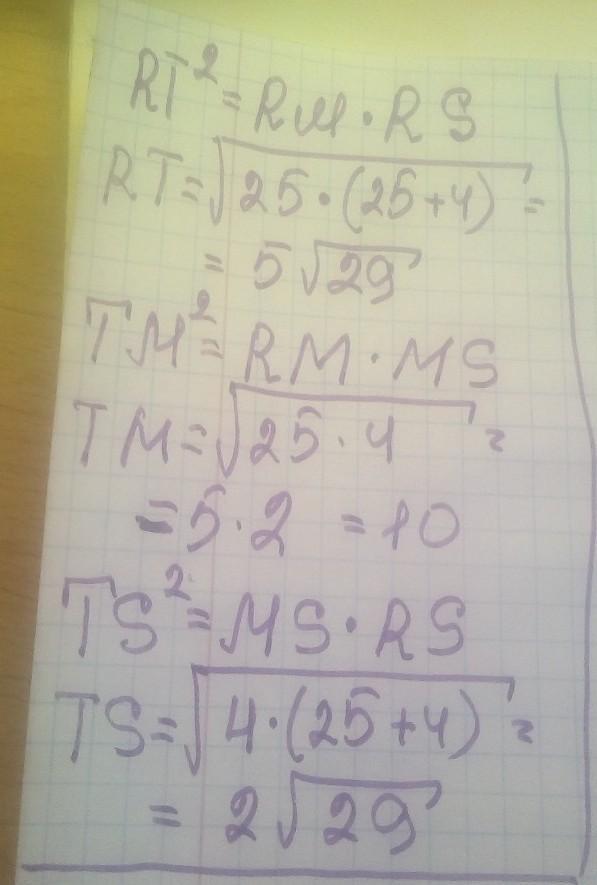 RT² = RM · RS
RT = √25 · (25+4) =
= 5 √29
TM² = RM · MS
TM = √25 · 4 =
= 5 · 2 = 10
TS² = MS · RS
TS = √4 · (25+4) =
= 2 √29